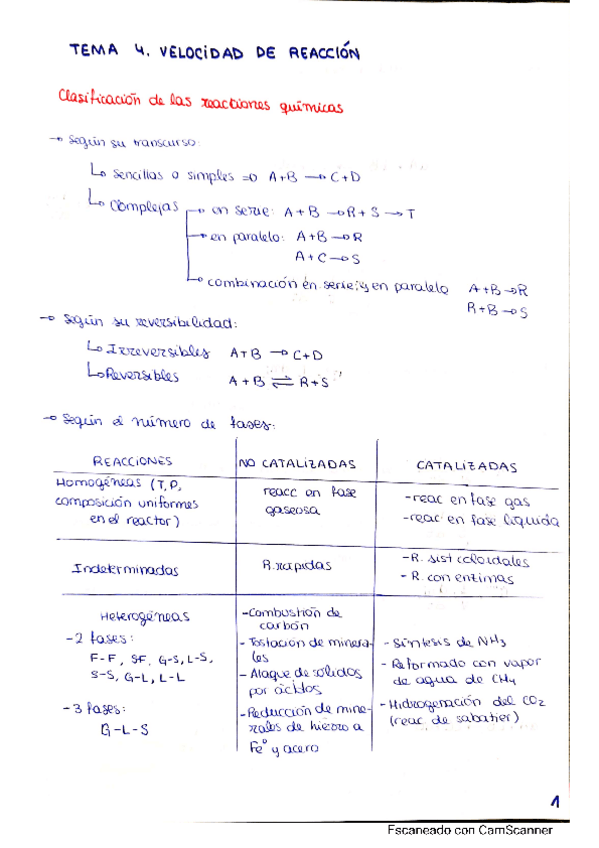 TEMA 4. VELOCIDAD DE REACCIÓN
Clasificación de las reacciones químicas
→ Según su transcurso:
↳ Sencillas o simples => A+B → C+D
↳ Complejas → en serie: A+B → R+S → T
→ en paralelo: A+B → R
A+C → S
→ combinación en serie y en paralelo A+B → R
R+B → S
→ Según su reversibilidad:
↳ Irreversibles A+B → C+D
↳ Reversibles A+B ⇌ R+S
→ Según el número de fases:
REACCIONES | NO CATALIZADAS | CATALIZADAS
Homogéneas (T, P, composición uniformes en el reactor) | reacc en fase gaseosa | -reac en fase gas -reac en fase líquida
Indeterminadas | R. rápidas | -R. sist coloidales -R. con enzimas
Heterogéneas
-2 fases:
F-F, SF, G-S, L-S,
S-S, G-L, L-L
-3 fases:
G-L-S
-Combustión de
carbón
-Tostación de minera-
les
-Ataque de sólidos
por ácidos
-Reducción de mine-
rales de hierro a
Fe° y acero
-Síntesis de NH3
-Reformado con vapor
de agua de CH4
-Hidrogenación del CO2
(reac de sabatier)
1
Escaneado con CamScanner